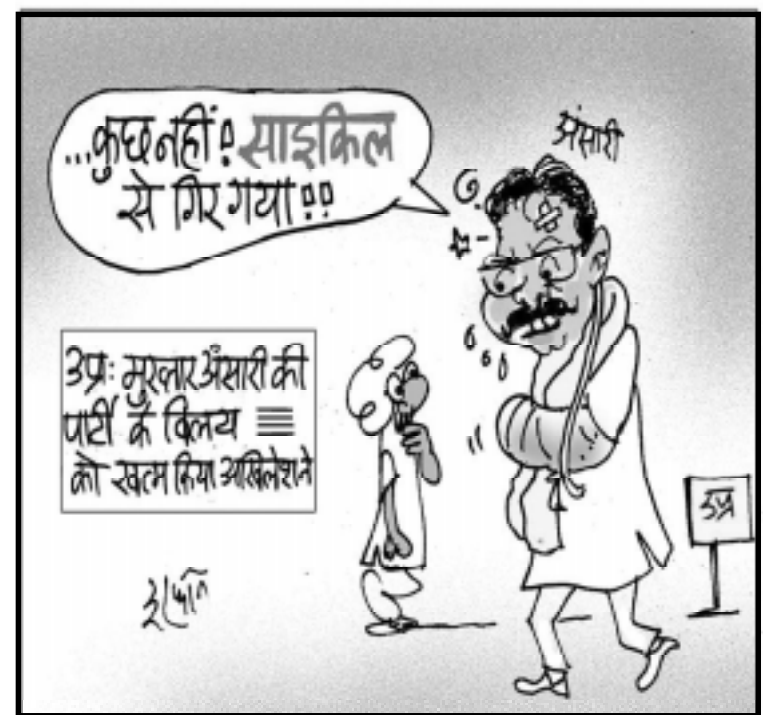 ...कुछ नहीं! साइकिल
से गिर गया!!
अंसारी
उप्र: मुख्तार अंसारी की
पार्टी के विलय
को खत्म किया अखिलेश ने
उप्र